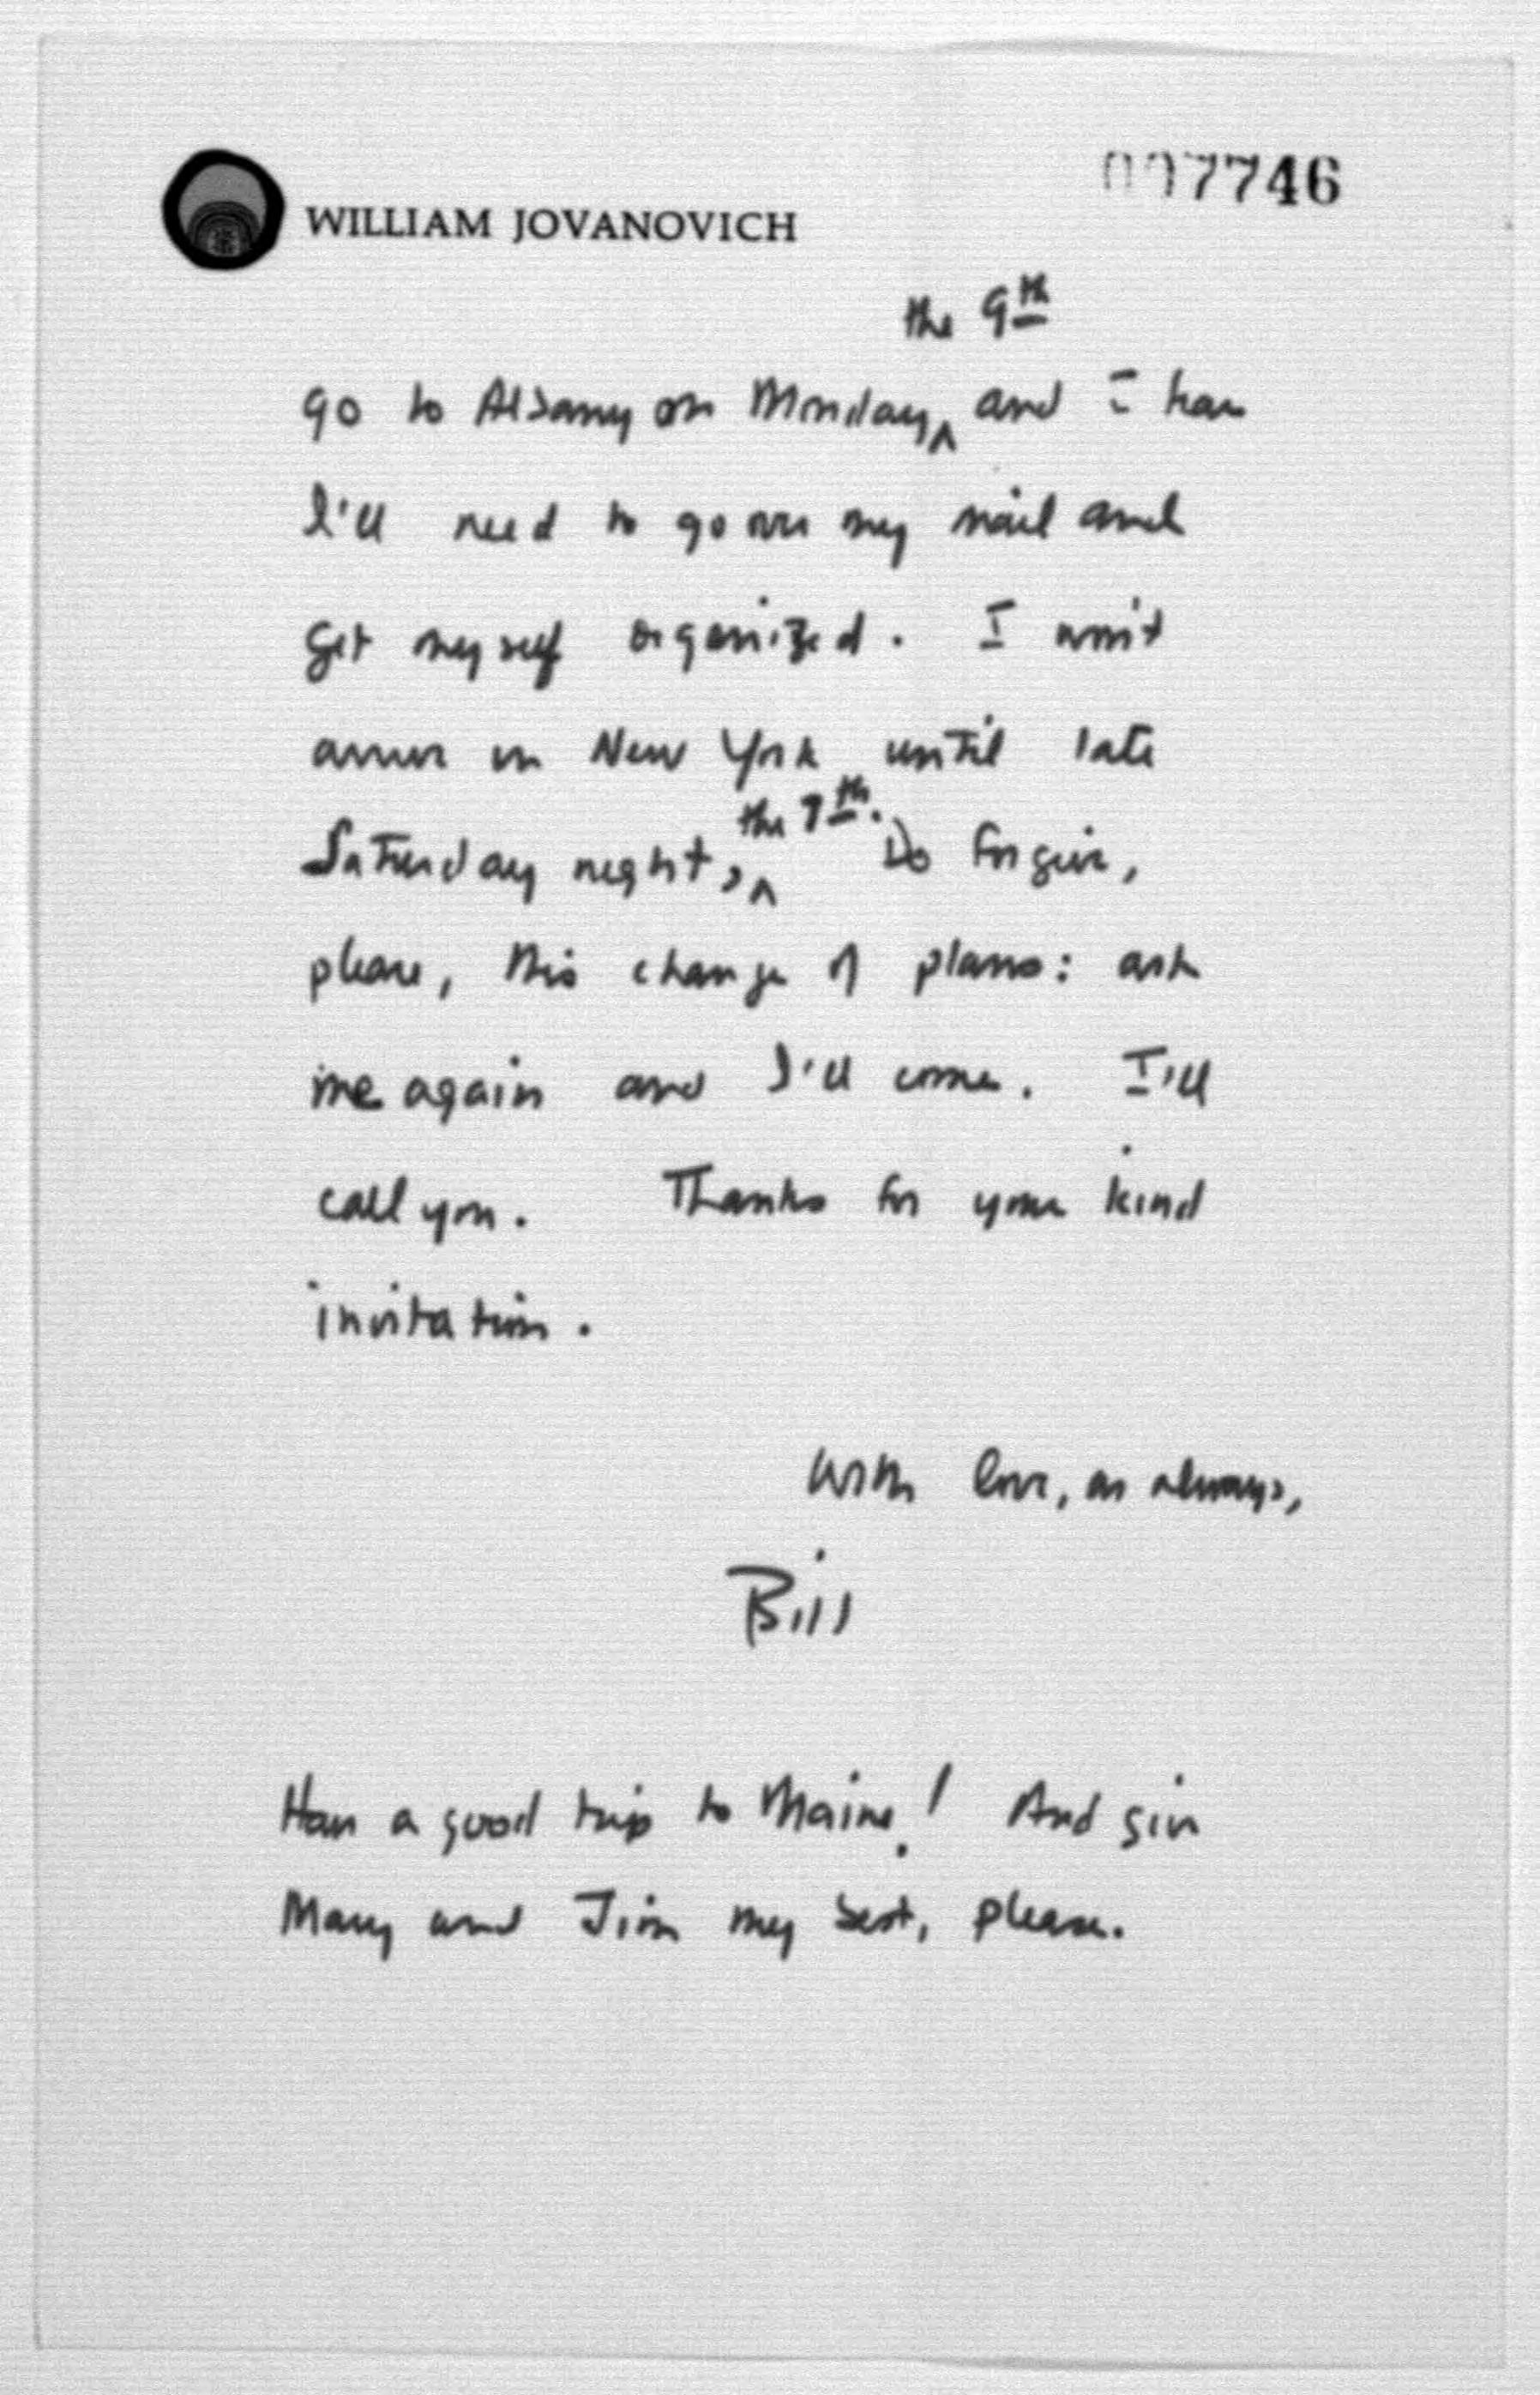 007746
WILLIAM JOVANOVICH
the 9th
go to Albany on Monday, ^ and I
I'll need to go over my mail and
get myself organized. I won't
arrive in New York until late
the 7th.
Saturday night, ^ Do forgive,
please, this change of plans: ask
me again and I'll come. I'll
call you. Thanks for your kind
invitation.
With love, as always,
Bill
Have a good trip to Maine! And give
Mary and Jim my best, please.